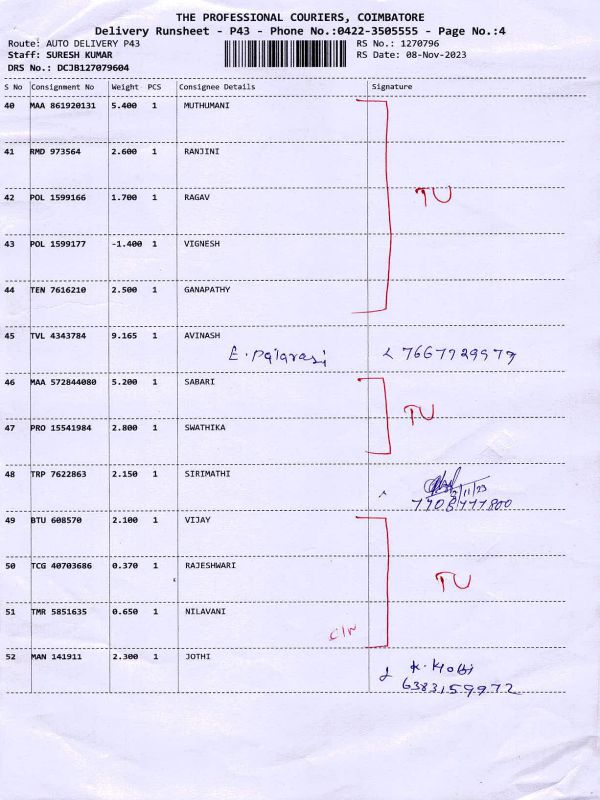 THE PROFESSIONAL COURIERS, COIMBATORE
Delivery Runsheet - P43 - Phone No.:0422-3505555 - Page No.:4
Route: AUTO DELIVERY P43 RS No.: 1270796
Staff: SURESH KUMAR RS Date: 08-Nov-2023
DRS No.: DCJB127079604
S No Consignment No Weight PCS Consignee Details Signature
40 MAA 861920131 5.400 1 MUTHUMANI
41 RMD 973564 2.600 1 RANJINI
42 POL 1599166 1.700 1 RAGAV TU
43 POL 1599177 -1.400 1 VIGNESH
44 TEN 7616210 2.500 1 GANAPATHY
45 TVL 4343784 9.165 1 AVINASH
E. 7667729977
46 MAA 572844080 5.200 1 SABARI
TU
47 PRO 15541984 2.800 1 SWATHIKA
48 TRP 7622863 2.150 1 SIRIMATHI
/11/23
49 BTU 608570 2.100 1 VIJAY
50 TCG 40703686 0.370 1 RAJESHWARI
TU
51 TMR 5851635 0.650 1 NILAVANI
52 MAN 141911 2.300 1 JOTHI
K.
6383159972